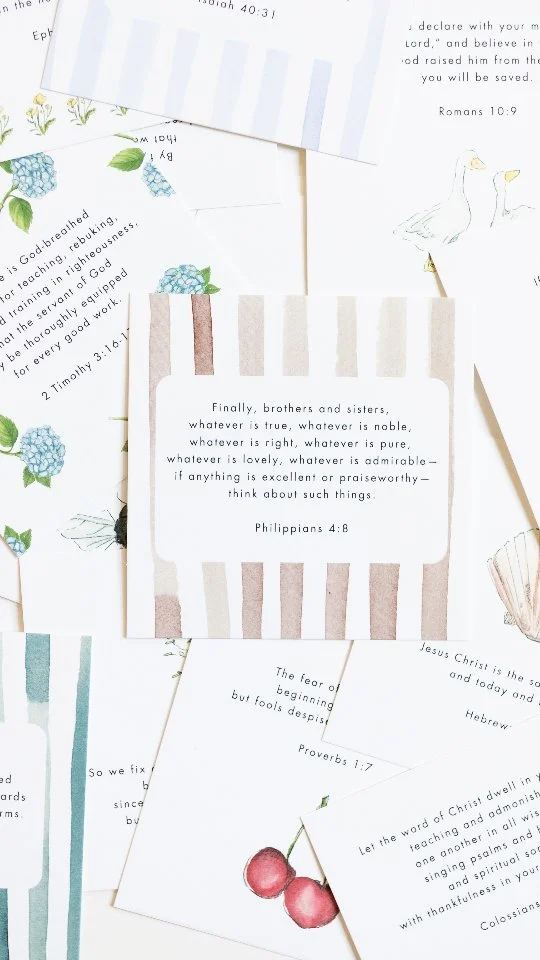 in the
Isaiah 40:31
Eph
declare with your m
Lord," and believe in
od raised him from the
you will be saved.
Romans 10:9
By
that w
e is God-breathed
for teaching, rebuking,
d training in righteousness,
hat the servant of God
y be thoroughly equipped
for every good work.
2 Timothy 3:16-1
Finally, brothers and sisters,
whatever is true, whatever is noble,
whatever is right, whatever is pure,
whatever is lovely, whatever is admirable—
if anything is excellent or praiseworthy—
think about such things.
Philippians 4:8
Jesus Christ is the sa
and today and
Hebrew
The fear of
beginning
but fools despise
Proverbs 1:7
ed
ards
rms.
So we fix
b
since
bu
Let the word of Christ dwell in y
teaching and admonish
one another in all wis
singing psalms and h
and spiritual son
with thankfulness in your
Colossians